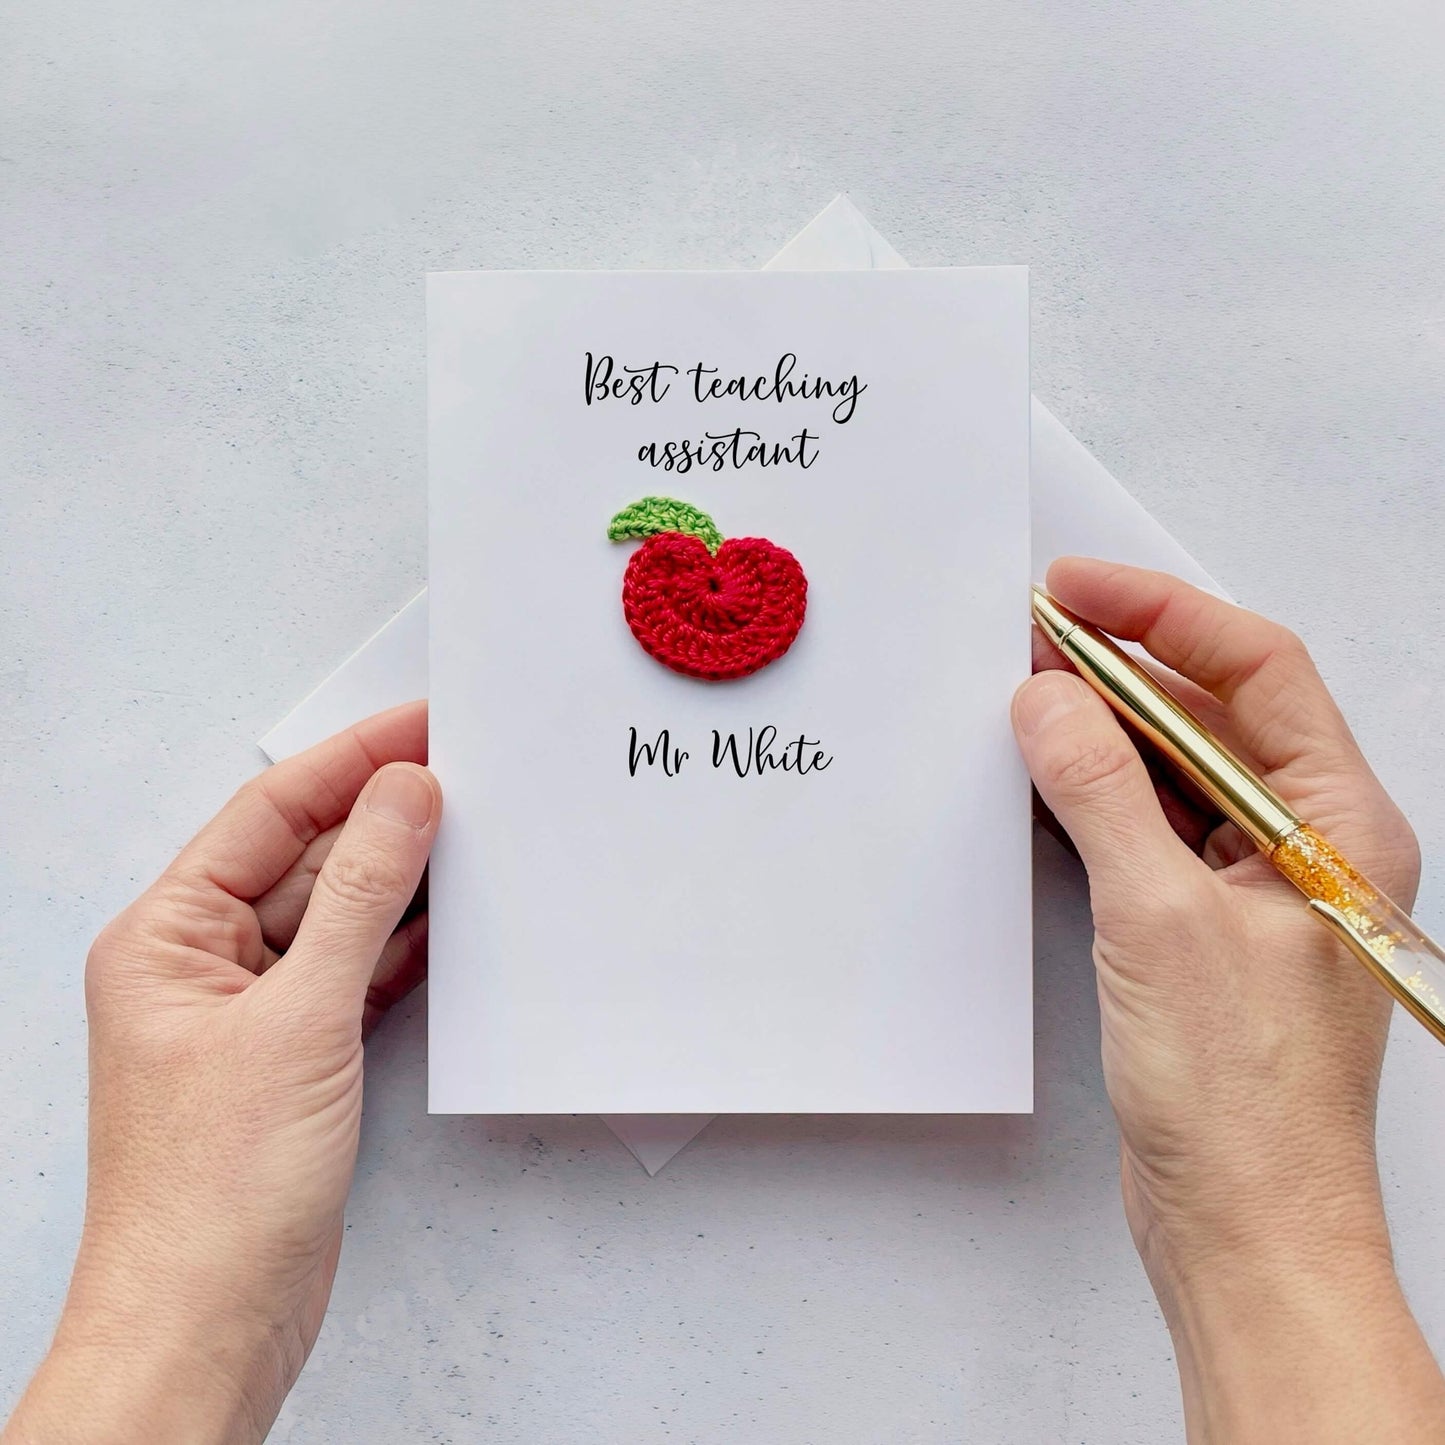 Best teaching
assistant
Mr White